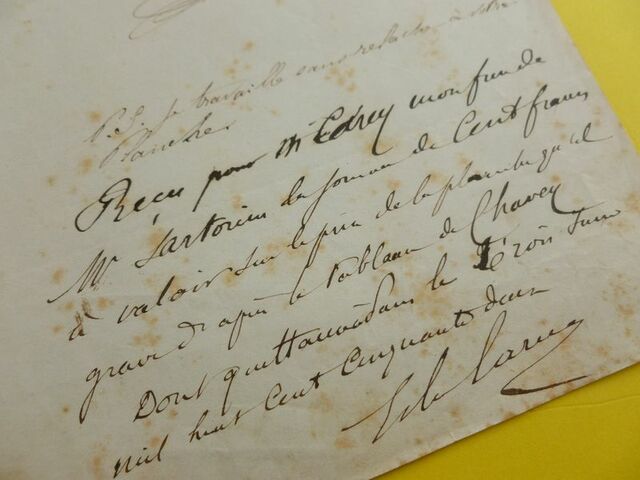 P.S. Je travaille sans relache à votre
Planche
Reçu pour Mr Carey mon fre de
Mr Sartorius la somme de Cent francs
à valoir sur le prix de la planche qu'il
grave d'après le tableau de Chavey
Dont quittance à Paris le Trois Juin
mil huit Cent Cinquante deux
Carey